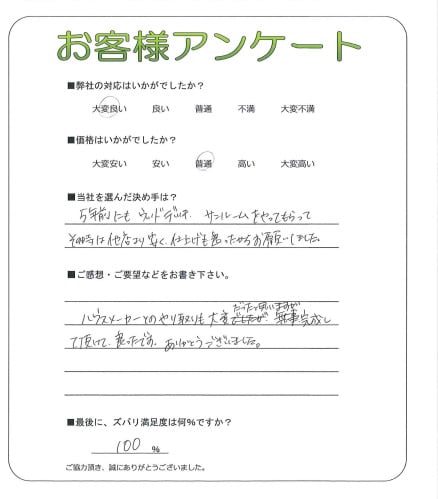 お客様アンケート
■弊社の対応はいかがでしたか?
大変良い 良い 普通 不満 大変不満
■価格はいかがでしたか?
大変安い 安い 普通 高い 大変高い
■当社を選んだ決め手は?
5年前にも ウッドデッキ、サンルームをやってもらって
その時は他店より安く、仕上げも良かったからお願いしました。
■ご感想・ご要望などをお書き下さい。
だったと思いますが
ハウスメーカーとのやり取りも大変でしたが、無事完成し
て頂けて、良かったです。ありがとうございました。
■最後に、ズバリ満足度は何%ですか?
100 %
ご協力頂き、誠にありがとうございました。